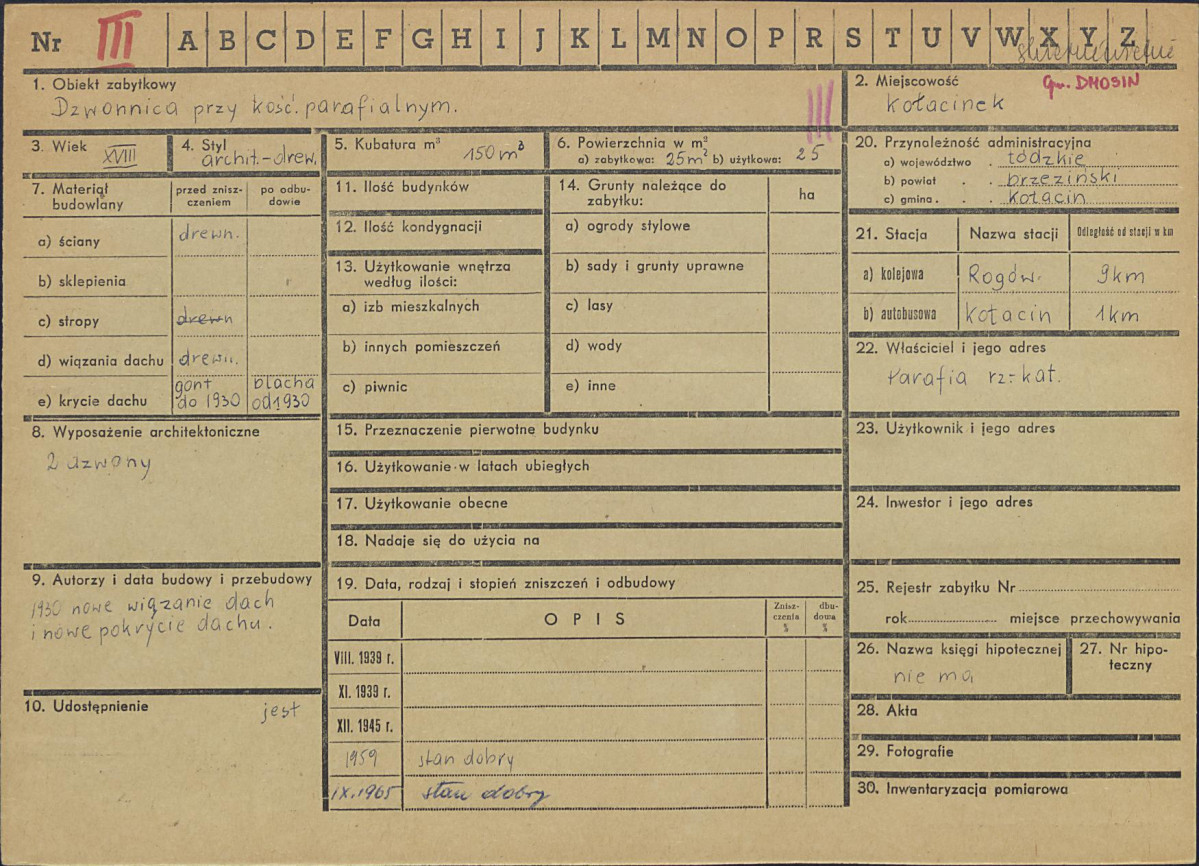 Nr III A B C D E F G H I J K L M N O P R S T U V W X Y Z
1. Obiekt zabytkowy
Dzwonnica przy kość. parafialnym.
III
2. Miejscowość
Gm. DMOSIN
Kołacinek
3. Wiek XVIII
4. Styl
archit.-drew.
5. Kubatura m³ 150 m³
6. Powierzchnia w m²
a) zabytkowa: 25m² b) użytkowa: 25
20. Przynależność administracyjna
a) województwo . łódzkie
b) powiat . . brzeziński
c) gmina . . . Kołacin
7. Materiał budowlany
przed znisz-
czeniem
po odbu-
dowie
a) ściany drewn.
b) sklepienia
c) stropy drewn
d) wiązania dachu drewn.
e) krycie dachu
gont
do 1930
blacha
od 1930
11. Ilość budynków
12. Ilość kondygnacji
13. Użytkowanie wnętrza
według ilości:
a) izb mieszkalnych
b) innych pomieszczeń
c) piwnic
14. Grunty należące do
zabytku:
ha
a) ogrody stylowe
b) sady i grunty uprawne
c) lasy
d) wody
e) inne
21. Stacja Nazwa stacji Odległość od stacji w km
a) kolejowa Rogów. 9km
b) autobusowa Kołacin 1km
22. Właściciel i jego adres
Parafia rz-kat.
8. Wyposażenie architektoniczne
2 dzwony
15. Przeznaczenie pierwotne budynku
16. Użytkowanie w latach ubiegłych
17. Użytkowanie obecne
18. Nadaje się do użycia na
23. Użytkownik i jego adres
24. Inwestor i jego adres
9. Autorzy i data budowy i przebudowy
1930 nowe wiązanie dach
i nowe pokrycie dachu.
10. Udostępnienie jest
19. Data, rodzaj i stopień zniszczeń i odbudowy
Data OPIS
Znisz-
czenia
%
dbu-
dowa
%
VIII. 1939 r.
XI. 1939 r.
XII. 1945 r.
1959 stan dobry
IX.1965 stan dobry
25. Rejestr zabytku Nr
rok miejsce przechowywania
26. Nazwa księgi hipotecznej
nie ma
27. Nr hipo-
teczny
28. Akta
29. Fotografie
30. Inwentaryzacja pomiarowa